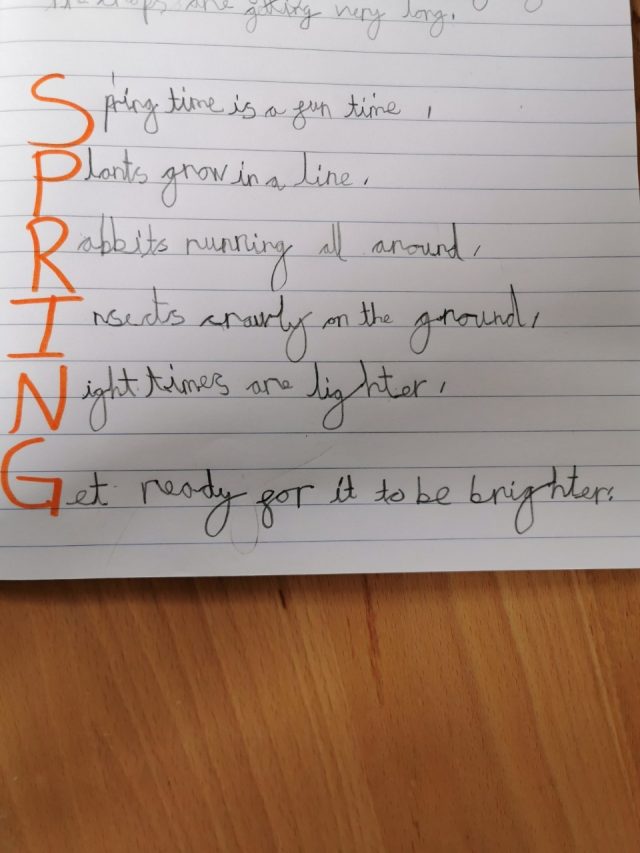 are getting very long.
Spring time is a fun time,
Plants grow in a line.
Rabbits running all around,
Insects crawly on the ground,
Night times are lighter,
Get ready for it to be brighter.